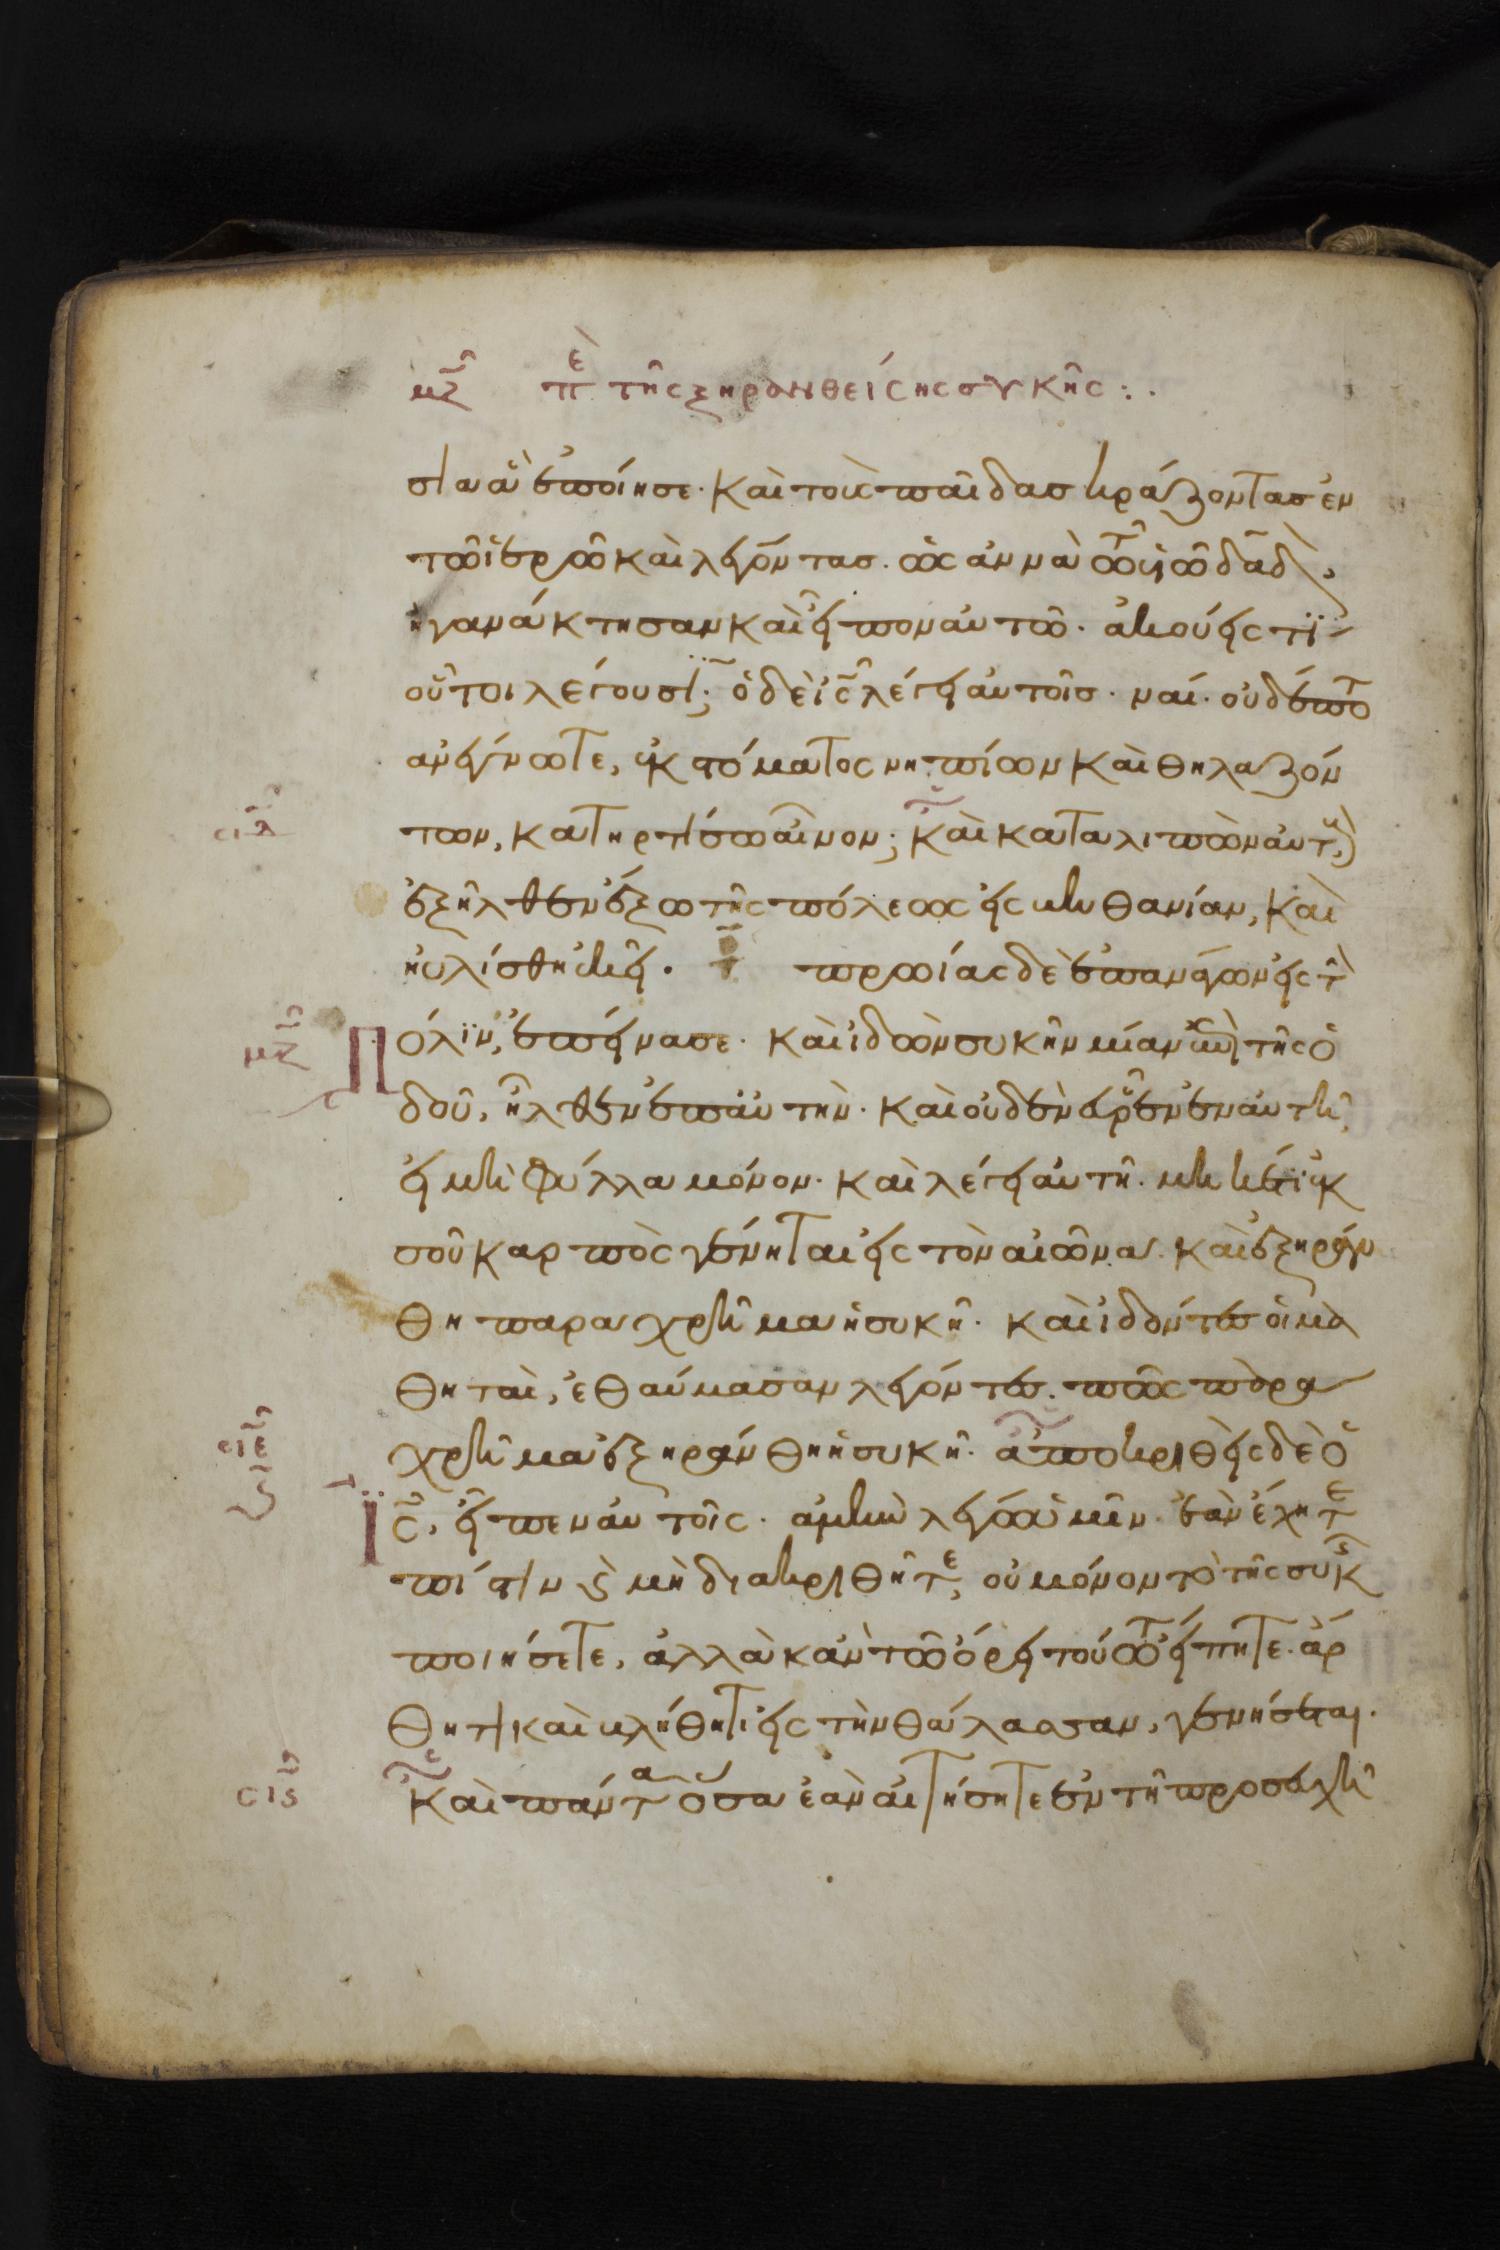 μζ περὶ τῆς ξηρανθείσης συκῆς :.
σια ἃ ἐποίησε· καὶ τοὺς παῖδας κράζοντας ἐν
τῶ ἱερῶ καὶ λέγοντας. ὡς ἀννὰ τῶ υἱῶ δαδ,
ἠγανάκτησαν καὶ εἶπον αὐτῶ· ἀκούεις τί
οὗτοι λέγουσι; ὁ δὲ ις λέγει αὐτοῖς· ναί· οὐδέποτε
ἀνέγνωτε, ἐκ στόματος νηπίων καὶ θηλαζόν
σιδ
των, κατηρτίσω αἶνον; καὶ καταλιπὼν αὐτοὺς
ἐξῆλθεν ἔξω τῆς πόλεως εἰς βηθανίαν, καὶ
ηὐλίσθη ἐκεῖ. πρωίας δὲ ἐπανάγων εἰς τὴν
μζ
Πόλιν, ἐπείνασε· καὶ ἰδὼν συκῆν μίαν ἐπὶ τῆς ὁ
δοῦ, ἦλθεν ἐπ αὐτὴν· καὶ οὐδὲν εὗρεν ἐν αὐτῆ,
εἰ μὴ φύλλα μόνον· καὶ λέγει αὐτῆ· μηκέτι ἐκ
σοῦ καρπὸς γένηται εἰς τὸν αἰῶνα· καὶ ἐξηράν
θη παραχρῆμα ἡ συκῆ· καὶ ἰδόντες οἱ μα
θηταὶ, ἐθαύμασαν λέγοντες· πῶς παρα
σιε
χρῆμα ἐξηράνθη ἡ συκῆ· ἀποκριθεὶς δὲ ὁ
Ϊς, εἶπεν αὐτοῖς· ἀμὴν λέγω ὑμῖν· ἐὰν ἔχητε
πίστιν καὶ μὴ διακριθῆτε, οὐ μόνον τὸ τῆς συκῆς
ποιήσετε, ἀλλὰ κἂν τῶ ὄρει τούτω εἴπητε· ἄρ
θητι καὶ βλήθητι εἰς τὴν θάλασσαν, γενήσεται·
σις
Καὶ πάντα ὅσα ἐὰν αἰτήσητε ἐν τῆ προσευχῆ